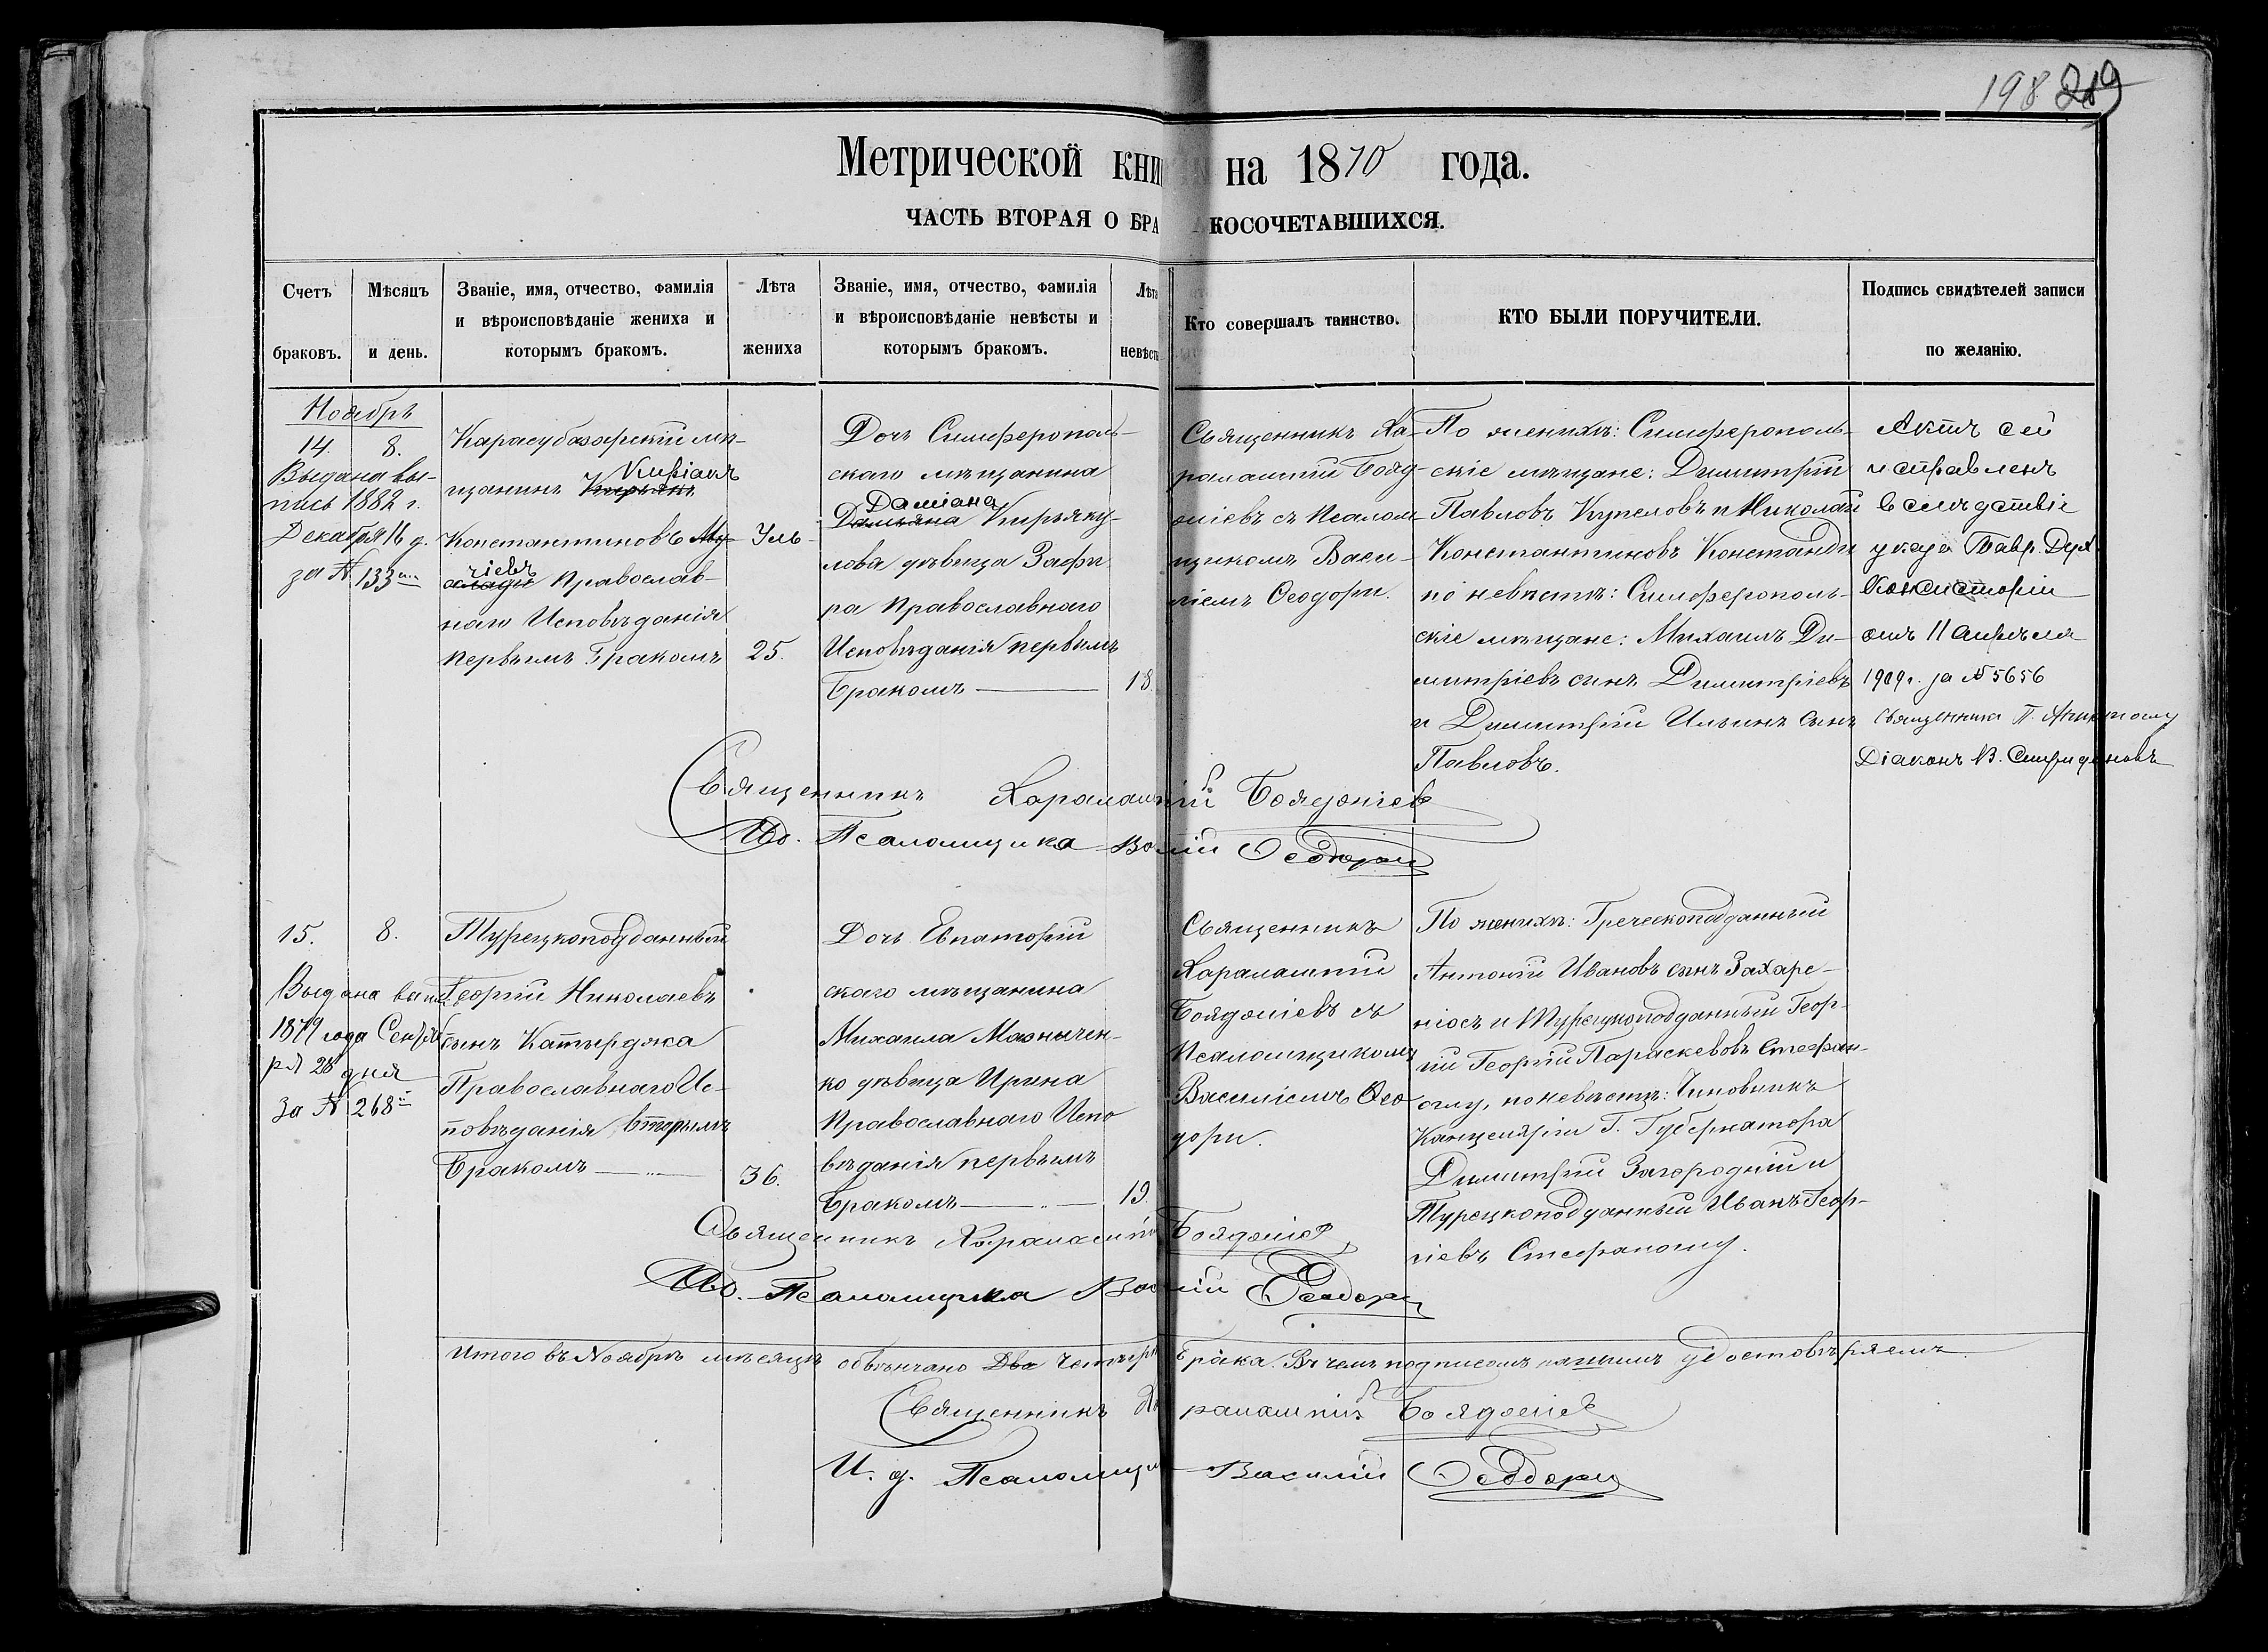 198 219
Метрической кни на 1870 года.
ЧАСТЬ ВТОРАЯ О БРАКОСОЧЕТАВШИХСЯ.
Счетъ браковъ.
Мѣсяцъ и день.
Званіе, имя, отчество, фамилія
и вѣроисповѣданіе жениха и
которымъ бракомъ.
Лѣта
жениха
Званіе, имя, отчество, фамилія
и вѣроисповѣданіе невѣсты и
которымъ бракомъ.
Лѣта
невѣсты
Кто совершалъ таинство.
КТО БЫЛИ ПОРУЧИТЕЛИ.
Подпись свидѣтелей записи
по желанію.
Ноябрь
14. 8.
Выдана вы-
пись 1882 г.
Декабря 16 д.
за № 133
Карасубазарскій мѣ-
Киріакъ
щанинъ Кирьякъ
Константиновъ
гіевъ
Православ-
наго Исповѣданія
первымъ Бракомъ
25.
Дочь Симферополь-
скаго мѣщанина
Даміана
Дамьяна Кирьяку-
лова дѣвица Зафи
ра Православнаго
Исповѣданія первымъ
Бракомъ
18.
Священникъ Ха-
рал��мпій Бояд-
жіевъ съ Псалом-
щикомъ Васи-
ліемъ Ѳеодори.
По женихѣ: Симферополь-
скіе мѣщане: Димитрій
Павловъ Купеловъ и Николай
Константиновъ Констанди
по невѣстѣ: Симферополь-
скіе мѣщане: Михаилъ Ди-
митріевъ сынъ Димитріевъ
и Димитрій Ильинъ сынъ
Павловъ.
Актъ сей
исправленъ
вслѣдствіе
указа Тавр. Дух.
Консисторіи
отъ 11 апрѣля
1909 г. за № 5656
Священникъ П.
Діаконъ В. Спиридоновъ
Священникъ Харалампій Бояджіевъ
Ив. Псаломщика Василій Ѳеодори
15. 8.
Выдана вып
1879 года Сентяб
ря 28 дня
За № 268
Турецкоподданный
Георгій Николаевъ
сынъ Катырджа
Православнаго Ис-
повѣданія вторымъ
Бракомъ
36.
Дочь Евпаторій
скаго мѣщанина
Михаила Мазничен-
ко дѣвица Ирина
Православнаго Испо
вѣданія первымъ
Бракомъ
19.
Священникъ
Харалампій
Бояджіевъ съ
Псаломщикомъ
Василіемъ Ѳео
дори.
По женихѣ: Греческоподданный
Антоній Ивановъ сынъ Захаре-
ніосъ и Турецкоподданный Геор-
гій Георгій Параскевовъ Стефан-
оглу, по невѣстѣ: Чиновникъ
Канцеляріи Г. Губернатора
Димитрій Загородній и
Турецкоподданный Иванъ Геор-
гіевъ Стефаноглу.
Священникъ Харалампій Бояджіевъ
Ив. Псаломщика Василій Ѳеодори
Итого въ Ноябрѣ мѣсяцѣ обвѣнчано Два Четыре брака. Въ чемъ подписомъ нашимъ удостовѣряемъ
Священникъ Харалампій Бояджіевъ
И. д. Псаломщи Василій Ѳеодори